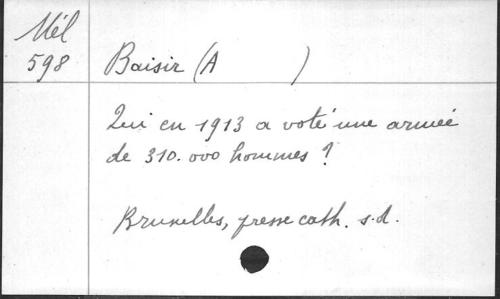 Mél
598
Baisir (A )
Qui en 1913 a voté une armée
de 310.000 hommes ?
Bruxelles, presse cath. s.d.